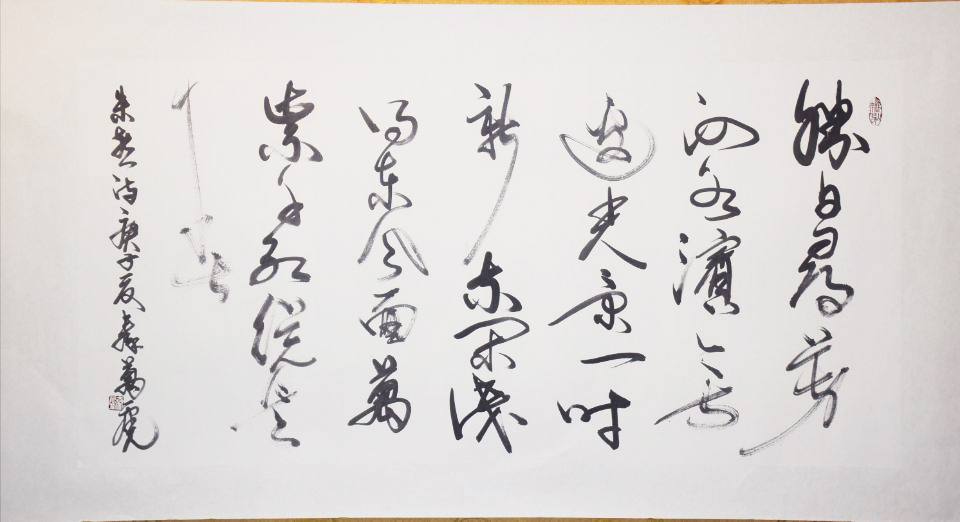 勝日尋芳
泗水濱無
邊光景一时
新等閑識
得東風面萬
紫千紅總是
春
朱熹诗庚子夏萬